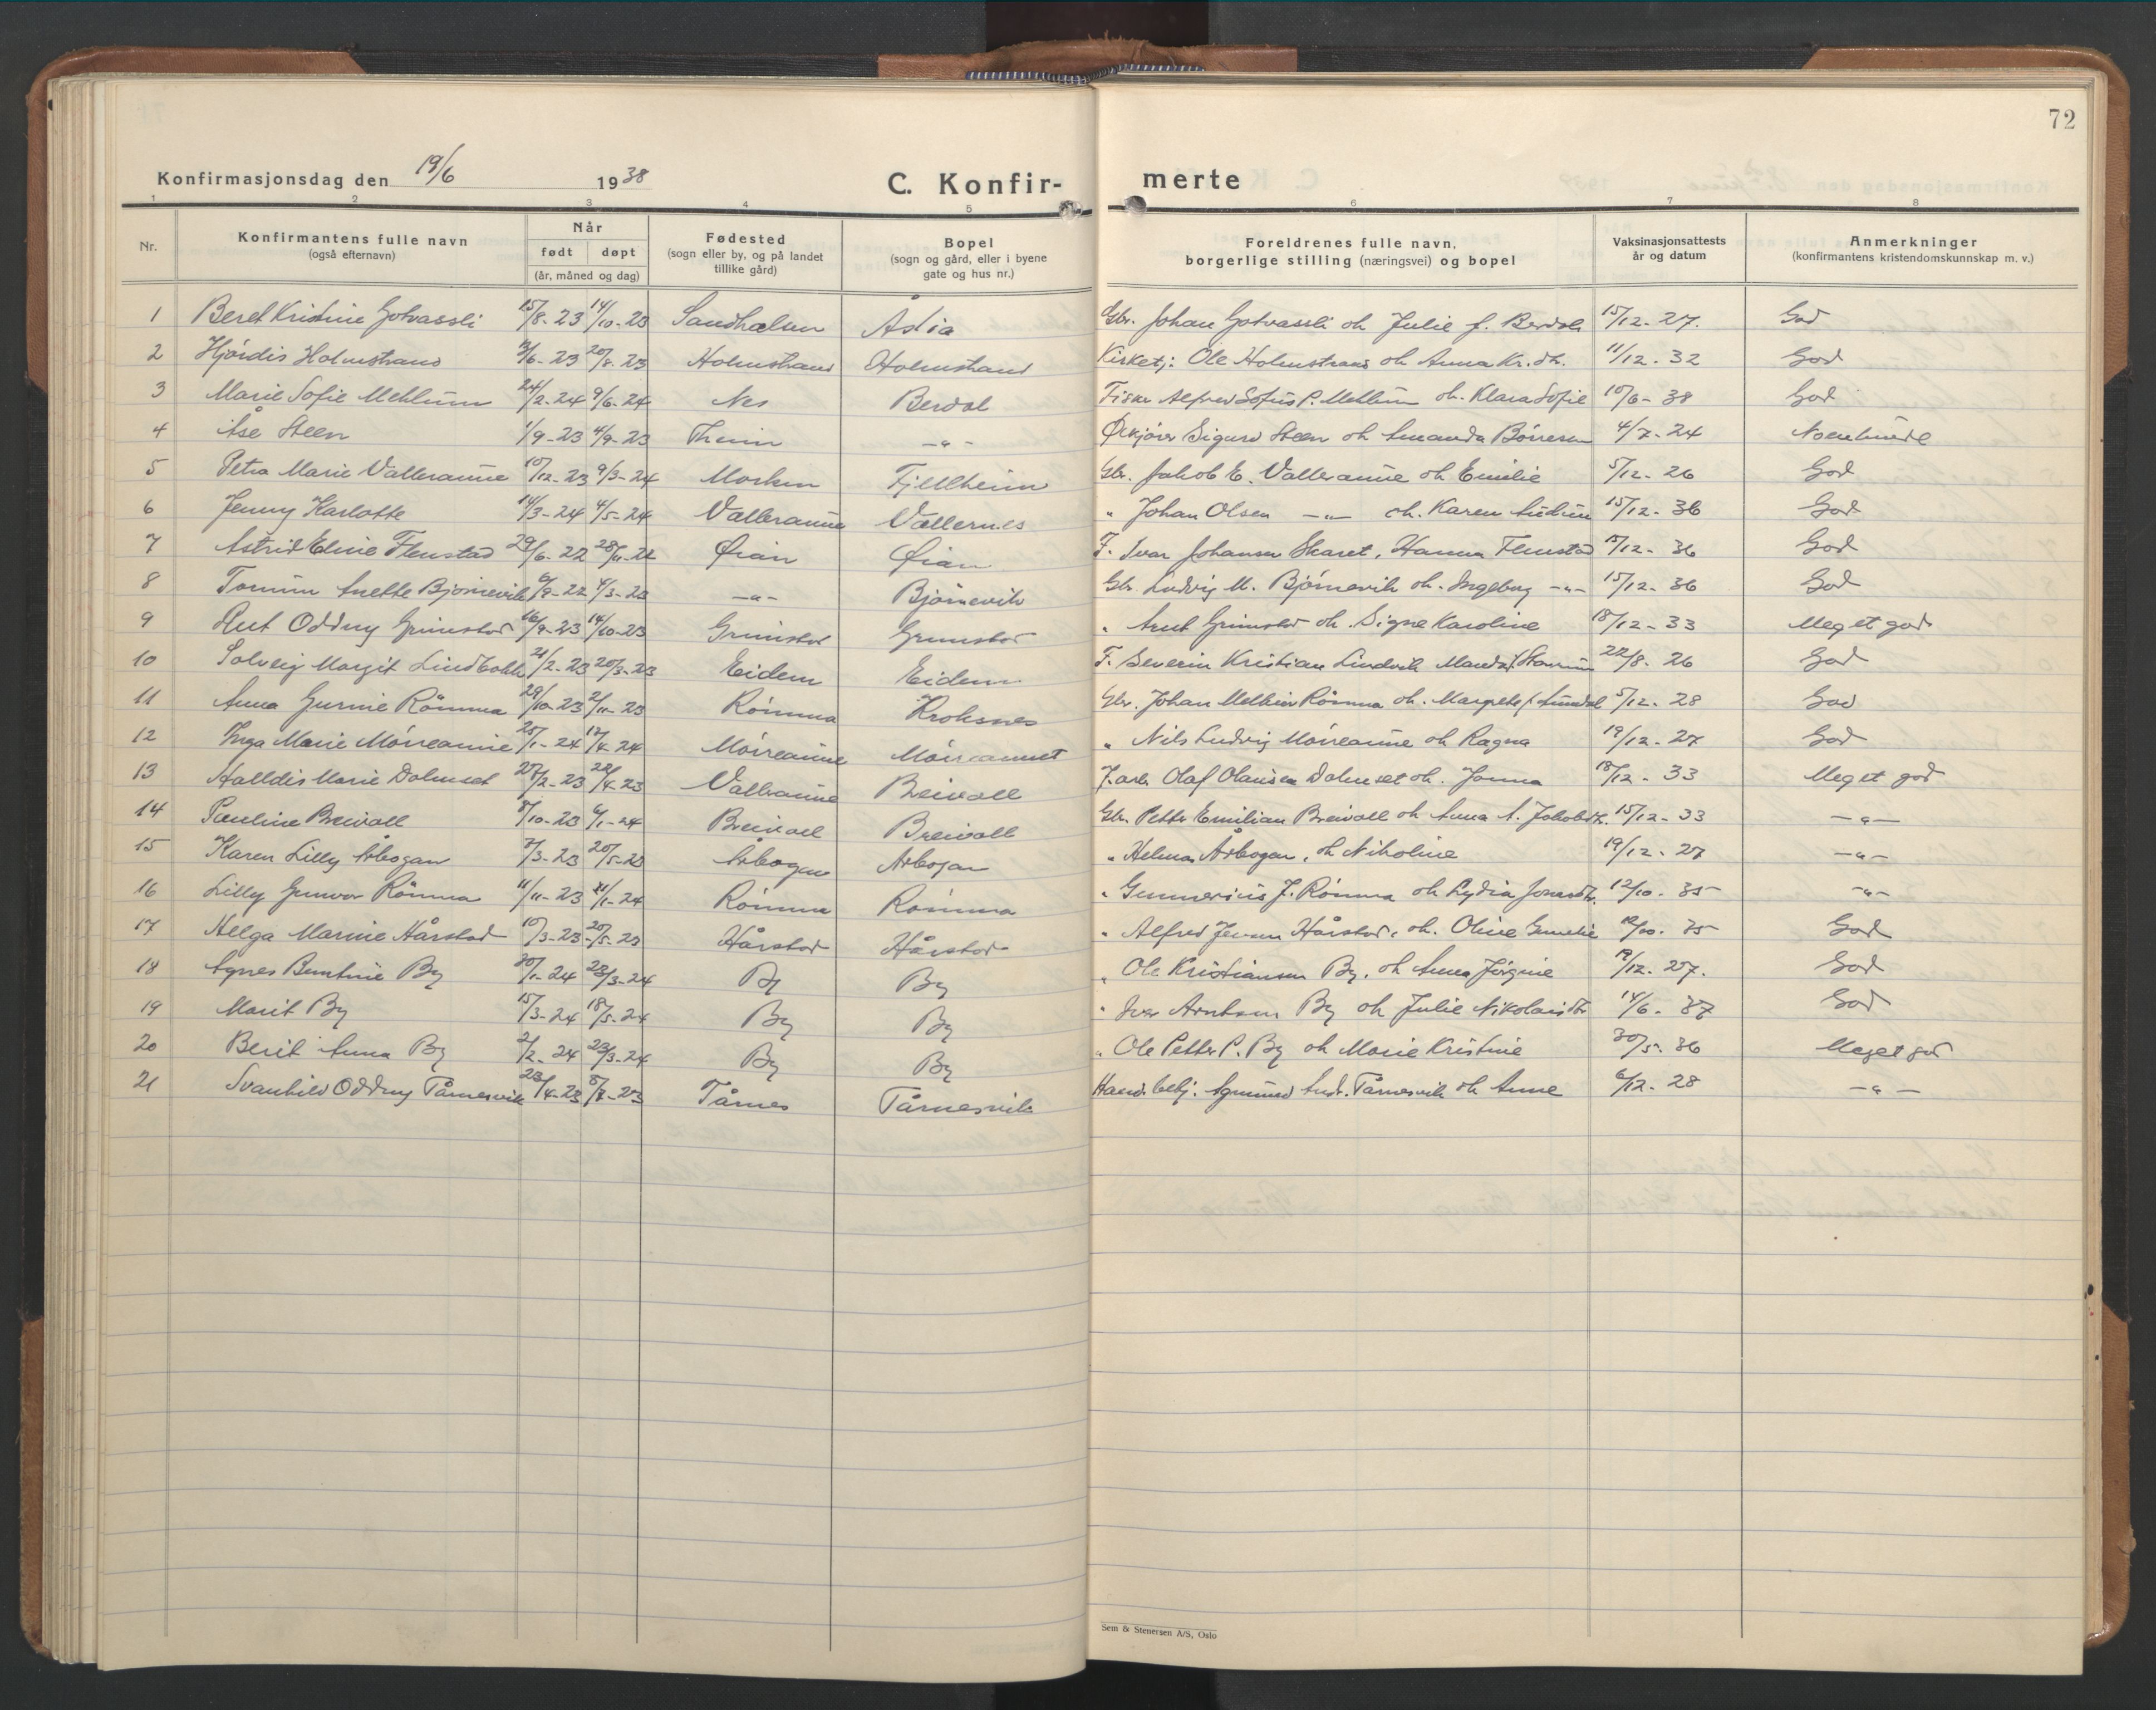 72
Konfirmasjonsdag den 19/6 1938 C. Konfir- merte
1 2 3 4 5 6 7 8
Nr. Konfirmantens fulle navn (også efternavn) Når født døpt (år, måned og dag) Fødested (sogn eller by, og på landet tillike gård) Bopel (sogn og gård, eller i byene gate og hus nr.) Foreldrenes fulle navn, borgerlige stilling (næringsvei) og bopel Vaksinasjonsattests år og datum Anmerkninger (konfirmantens kristendomskunnskap m. v.)
1 Beret Kristine Gotvassli 15/8-23 14/10-23 Sandhalsen Åstia Gbr. Johan Gotvassli oh Julie f. Berdal 15/12-27. God
2 Hjørdis Holmstrand 3/6-23 20/8-23 Holmstrand Holmstrand Kirketj: Ole Holmstrand oh Anna Kr. dtr. 11/12-32 God
3 Marie Sofie Mehlum 24/2-24 9/6-24 Nes Berdal Fisker Alfred Sofus P. Mehlum oh. Klara Sofie 10/6-38 God
4 Åse Steen 1/9-23 4/9-23 Trheim -"- Sigurd Steen oh Amanda Börresen 4/7-24 Noenlunde
5 Petra Marie Valleraune 10/12-23 9/3-24 Morken Fjellheim Gbr. Jakob E. Valleraune oh Emilie 5/12-26 God
6 Jenny Karlotte 14/3-24 4/5-24 Valleraune Vallernes " Johan Olsen -"- oh. Karen 15/12-36 God
7 Astrid Elvie Flenstad 29/6-22 28/11-22 Øian Øian F. Ivar Johansen Skaret, Hanna Flenstad 15/12-36 God
8 Anette Bjørnevik 6/9-22 4/3-23 -"- Bjørnevik Gbr. Ludvig M. Bjørnevik oh. Ingeborg -"- 15/12-36 God
9 Rut Oddny Grimstad 16/9-23 14/10-23 Grimstad Grimstad " Arnt Grimstad oh. Signe Karoline 18/12-33 Meget god
10 Solveig Margit 21/2-23 20/3-23 Eidem Eidem F. Severin Kristian Lindvik 22/8-26 God
11 Anna Gurine Römma 29/10-23 2/11-23 Römma Kroksnes Gbr. Johan Römma oh. Margrete f. 5/12-28 God
12 Inga Marie Mörreaune 25/1-24 12/4-24 Mörreaune Mörreaunet " Nils Ludvig Mörreaune oh Ragna 19/12-27 God
13 Halldis Marie Dolmset 27/2-23 22/4-23 Valleraune Breivoll J.arb. Olaf Olausen Dolmset oh. Jonna 18/12-33 Meget god
14 Pauline Breivoll 8/10-23 6/1-24 Breivoll Breivoll Gbr. Petter Emilian Breivoll oh Anna A. Jakobdtr. 15/12-33 -"-
15 Karen Lilly Arbogan 7/3-23 20/5-23 Arbogan Arbogan " Helmer Arbogan, oh Nikoline 19/12-27 -"-
16 Lilly Gunvor Römma 11/11-23 /1-24 Römma Römma " Gunnerius J. Römma oh Lydia 12/10-35 -"-
17 Helga Marine Hårstad 10/3-23 20/5-23 Hårstad Hårstad " Alfred Jensen Hårstad, oh. Oline 12/10-35 God
18 Agnes Bentine By 30/1-24 23/3-24 By By " Ole Kristiansen By, oh Anna Jörgine 19/12-27. God
19 Marit By 15/3-24 18/5-24 By By " Iver Arntsen By oh Julie Nikolaisdtr 14/6-37 God
20 Berit Anna By 2/2-24 23/3-24 By By " Ole Petter P. By oh Marie Kristine 30/5-36 Meget god
21 Svanhild Oddny Tårnesvik 23/4-23 8/7-23 Tårnes Tårnesvik Handelsbetj. And. Tårnesvik oh Anne 6/12-28 -"-
Sem & Stenersen A/S, Oslo